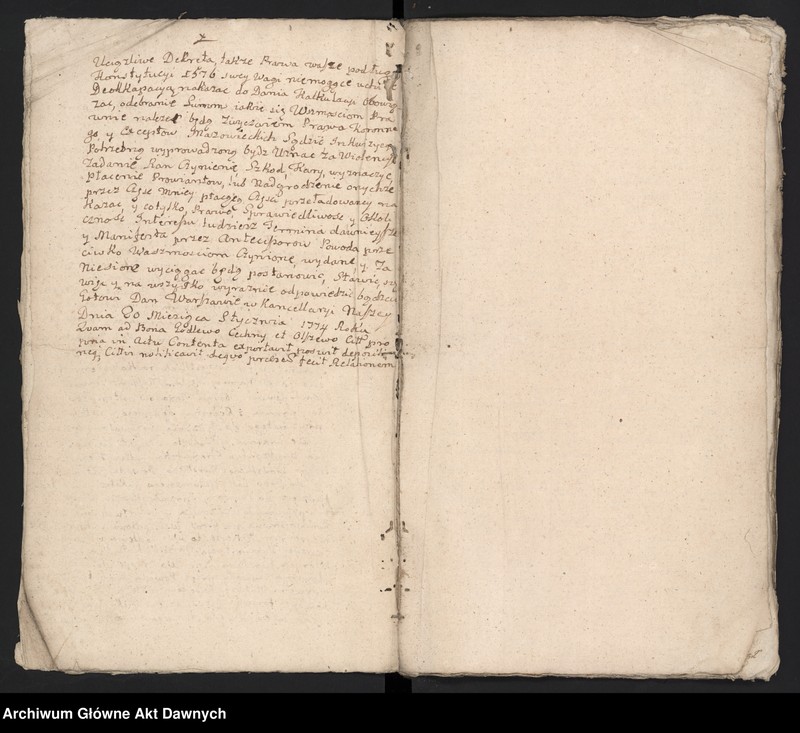 Uciążliwe Dekreta, także Prawa wasze podług
Konstytucyi 1576 swey Wagi niemogące
nakazac do Dania Kalkulacyi
zac, odebranie Summ jakie się Waszmościom Pra
wnie należeć będą Zwyczaiem Prawa Koronne
go y Mazowieckich Sądzić Inkwizycyą
Potrzebną wyprowadzoną bydz Uznac za
Zadanie Ran Czynienie Szkod, Kary, wyznaczyc
płacenie Prowiantow, lub Nadgrodzenie onychze
przez mniey płacącą przeładowaney na
kazac y cotylko Prawa, Sprawiedliwosc y Okoli
cznosc Interessu tudziesz Termina dawnieysze
y Manifesta przez Antecessorow Powoda prze
ciwko Waszmościom Czynione, wydane, y Za
Niesione wyciągac będą postanowic, Stawić się
więc y na wszystko wyraznie odpowiedzić bądzcie
Gotowi Dan w Warszawie w Kancellaryi Naszey
Dnia 20 Miesiąca Stycznia 1774 Roku
ad Bona Godlewo Cechny et Olszewo Citt pro
pria in Actu Contenta exportavit posuit
neq Cittis notificavit deqvo præsens fecit Relationem
Archiwum Główne Akt Dawnych